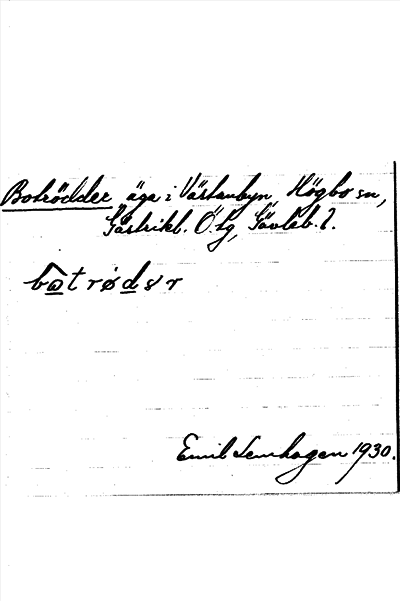 Botrödder äga i Västanbyn, Högbo sn,
Gästrikl. Ö. tg, Gävleb. l.
Emil Lenhagen 1930.